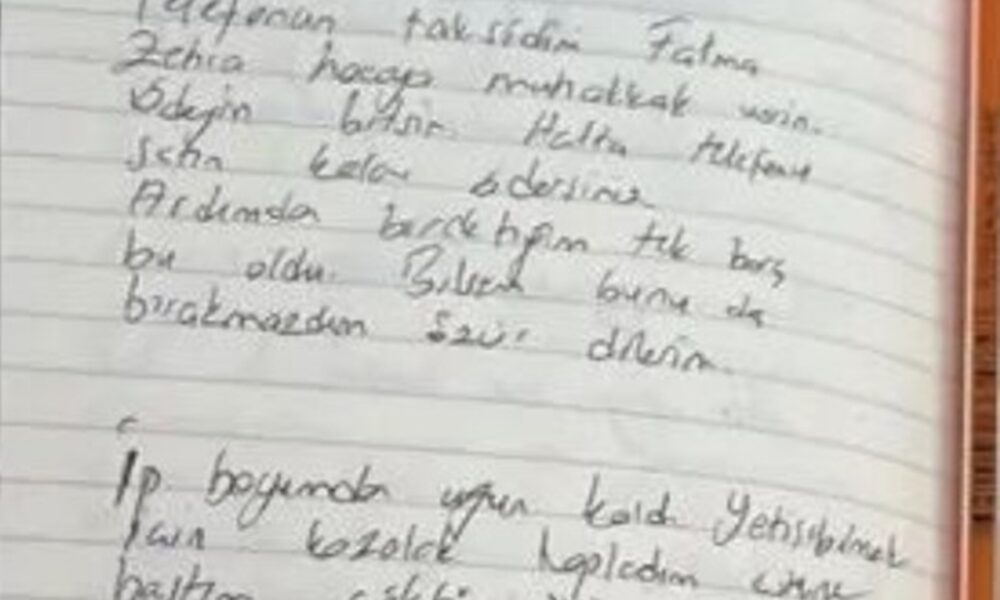 Telefonun taksidini Fatma
Zehra hocaya muhakkak verin.
Ödeyin bitsin. Hatta telefonu
satın kalanı ödersiniz
Ardımda bıraktığım tek borç
bu oldu. Bilsem bunu da
bırakmazdım özür dilerim.
İp boyumdan uzun kaldı Yetişebilmek
için kozalak topladım